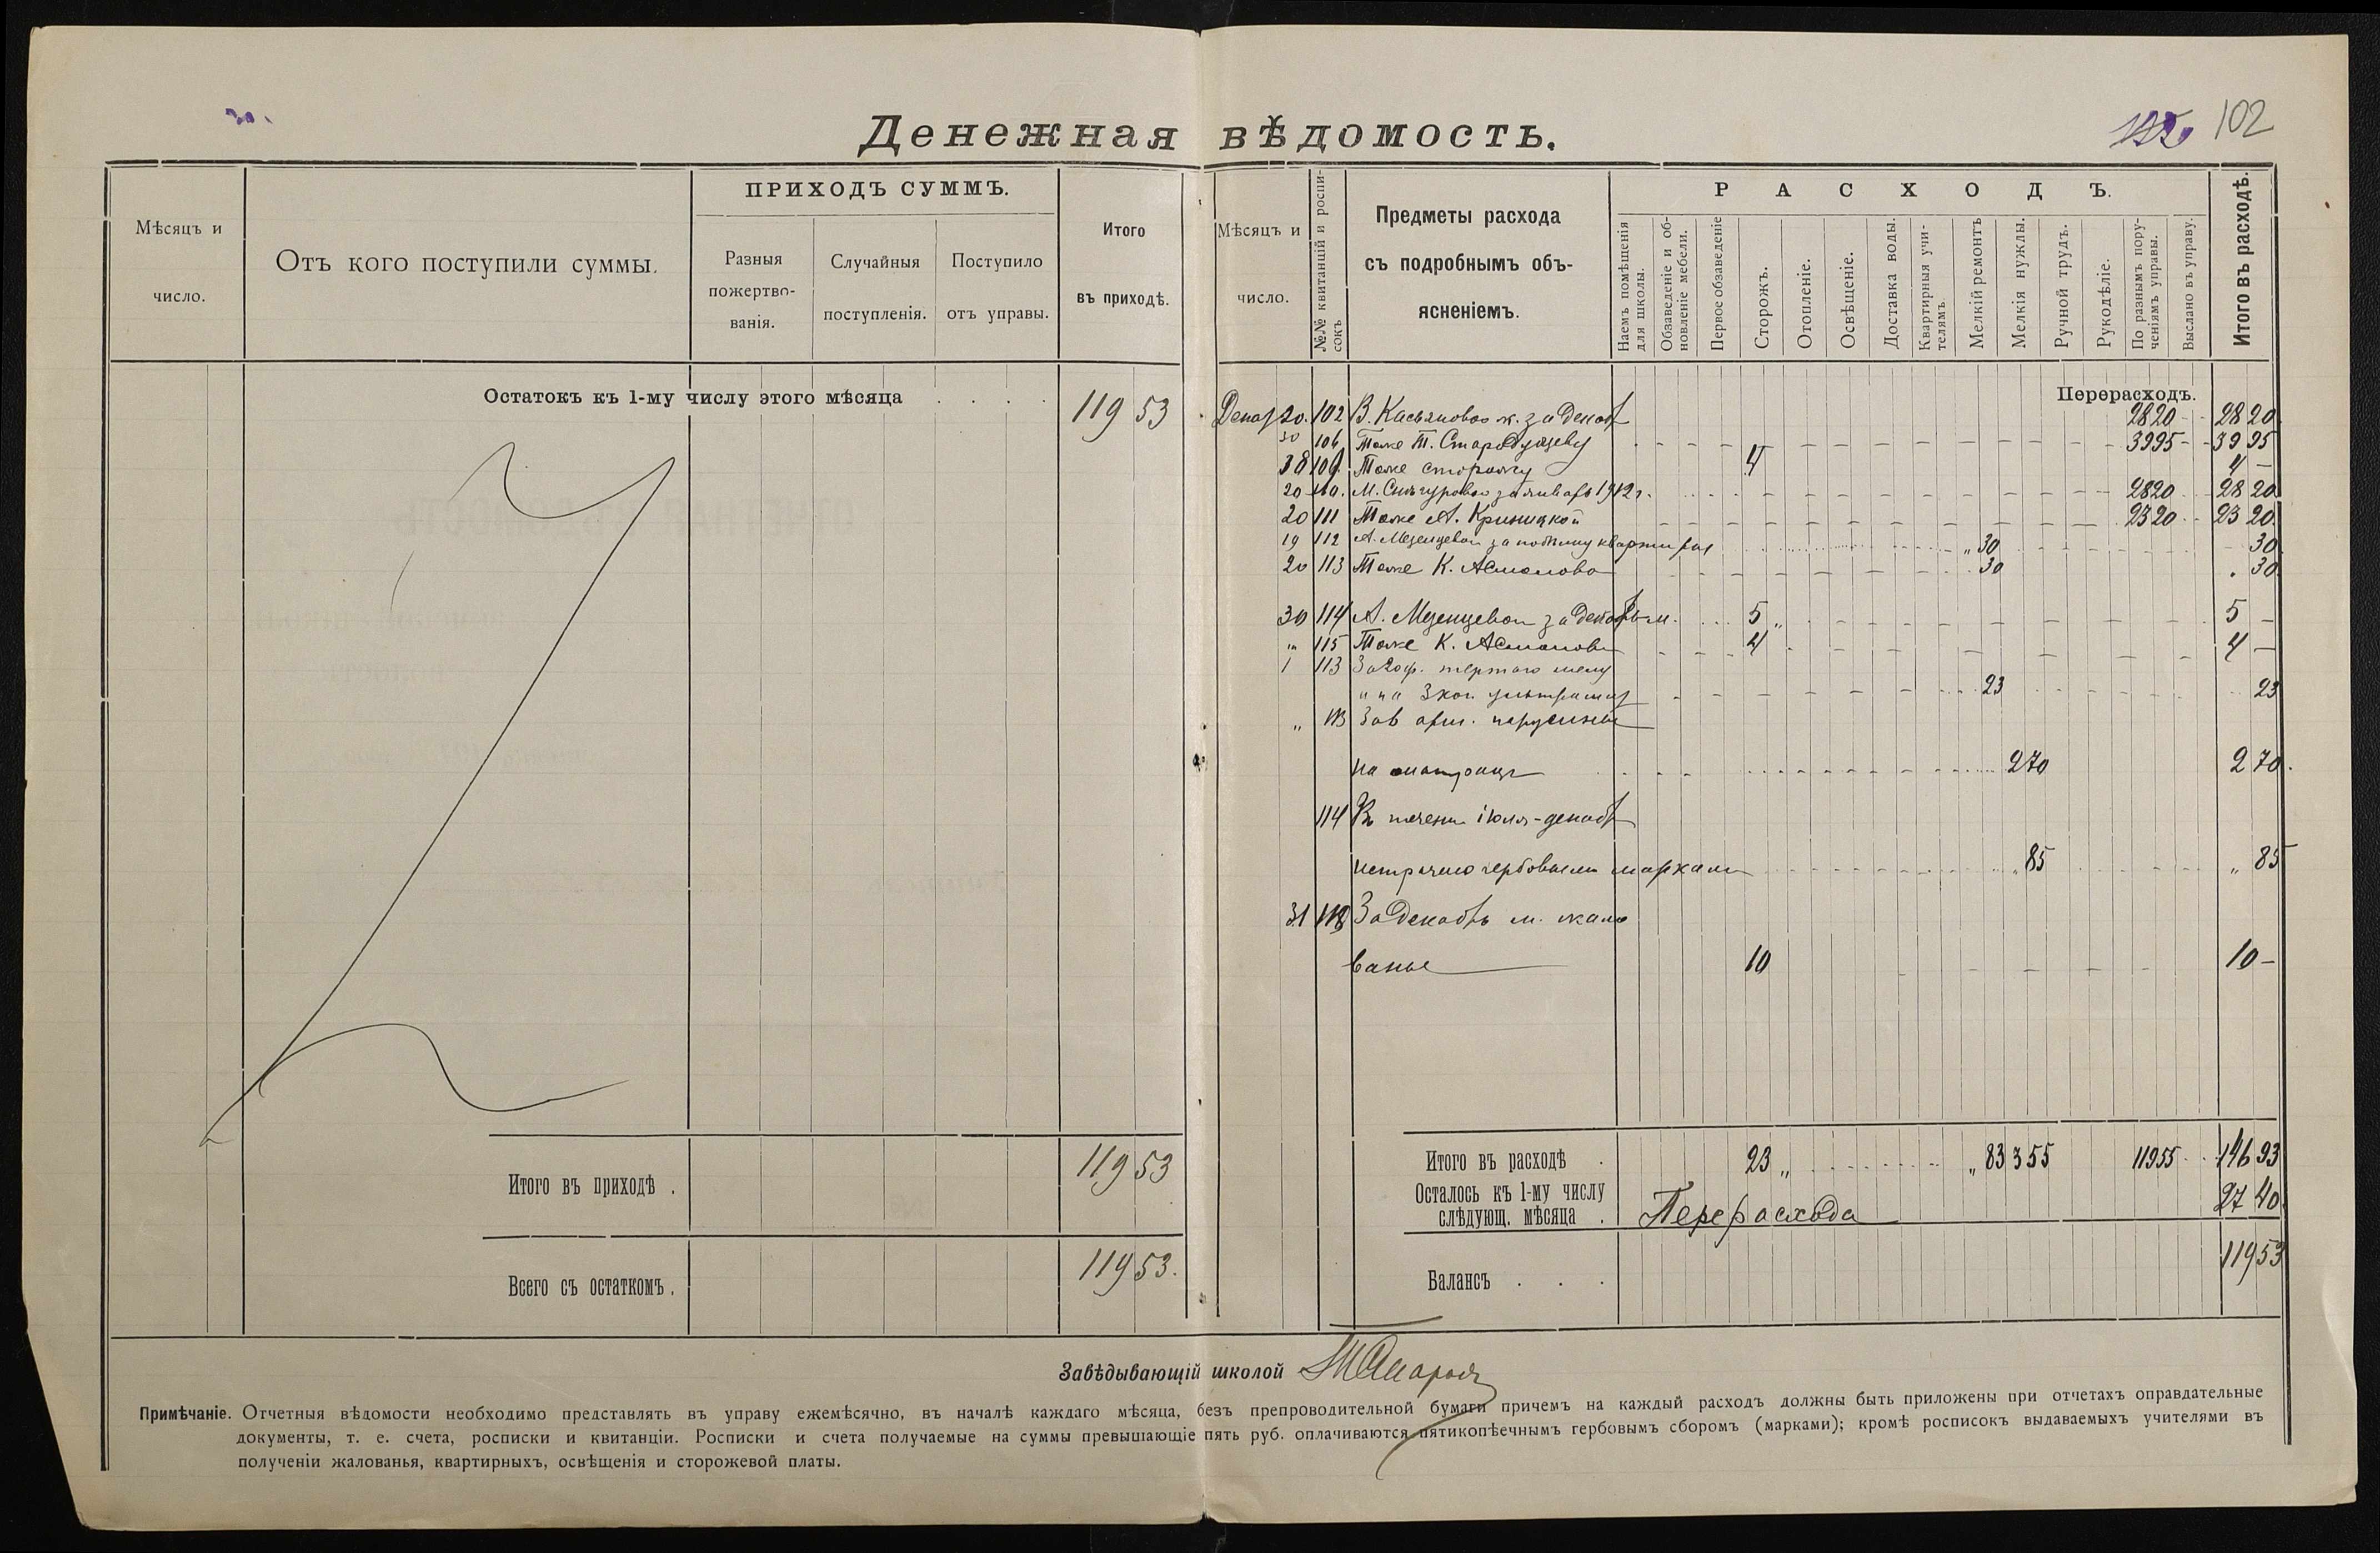 Денежная вѣдомость.
102
Мѣсяцъ и число.
Отъ кого поступили суммы.
ПРИХОДЪ СУММЪ.
Разныя пожертво-
ванія.
Случайныя поступленія.
Поступило отъ управы.
Итого въ приходѣ.
Остатокъ къ 1-му числу этого мѣсяца . . . . 119 53
Итого въ приходѣ . 119 53
Всего съ остаткомъ . 119 53.
Мѣсяцъ и число.
№№ квитанцій и роспи-
сокъ
Предметы расхода
съ подробнымъ объ-
ясненіемъ.
РАСХОДЪ.
Наемъ помѣщенія для школы.
Обзаведеніе и об-
новленіе мебели.
Первое обзаведеніе
Сторожъ.
Отопленіе.
Освѣщеніе.
Доставка воды.
Квартирныя учи-
телямъ.
Мелкій ремонтъ
Мелкія нужды.
Ручной трудъ.
Рукодѣліе.
По разнымъ пору-
ченіямъ управы.
Выслано въ управу.
Итого въ расходѣ.
Перерасходъ.
20. 102 В. Касьяновой ж. за Декаб 28 20 28 20
30 106 Тоже Т. 39 95 39 95
Тоже сторожу 4 4 —
20 М. Снѣгуровой за январь 1912 г. 28 20 28 20
20 111 Тоже А. Криницкой 23 20 23 20
19 112 А. Мезенцевой за квартиры „ 30 30
20 113 Тоже К. 30 30
30 114 А. Мезенцевой за Декабрь м. 5 „ 5 —
„ 115 Тоже К. 4 4 —
1 113 За 20 ф. тертаго мелу
„ „ „ 3 коп. 23 23
„ 113 За 6 арш. парусины
на матрацъ 2 70 2 70
114 Въ течени іюля-декаб
истрачено гербовыми марками „ 85 „ 85
31 За Декабрь м. жало
ванье 10 10 —
Итого въ расходѣ . 23 „ „ 83 3 55 119 55 146 93
Осталось къ 1-му числу
слѣдующ. мѣсяца . Перерасхода 27 40
Балансъ . . . 119 53
Завѣдывающій школой
Примѣчаніе. Отчетныя вѣдомости необходимо представлять въ управу ежемѣсячно, въ началѣ каждаго мѣсяца, безъ препроводительной бумаги причемъ на каждый расходъ должны быть приложены при отчетахъ оправдательные
документы, т. е. счета, росписки и квитанціи. Росписки и счета получаемые на суммы превышающіе пять руб. оплачиваются пятикопѣечнымъ гербовымъ сборомъ (марками); кромѣ росписокъ выдаваемыхъ учителями въ
полученіи жалованья, квартирныхъ, освѣщенія и сторожевой платы.